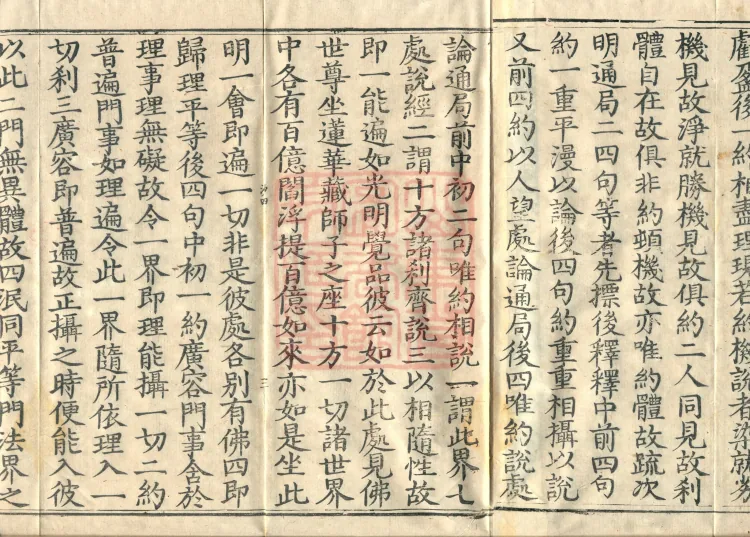 虧盈後一約相盡理現若約機說者染就劣
機見故淨就勝機見故俱約二人同見故剎
體自在故俱非約頓機故亦唯約體故疏次
明通局二四句等者先摽後釋釋中前四句
約一重平漫以論後四句約重重相攝以說
又前四約以人望處論通局後四唯約說處
論通局前中初二句唯約相說一謂此界七
處說經二謂十方諸剎齊說三以相隨性故
即一能遍如光明覺品彼云如於此處見佛
世尊坐蓮華藏師子之座十方一切諸世界
中各有百億閻浮提百億如來亦如是坐此
明一會即遍一切非是彼處各別有佛四即
歸理平等後四句中初一約廣容門事含於
理事理無礙故令一界即理能攝一切二約
普遍門事如理遍令此一界隨所依理入一
切剎三廣容即普遍故正攝之時便能入彼
以此二門無異體故四泯同平等門法界之
三